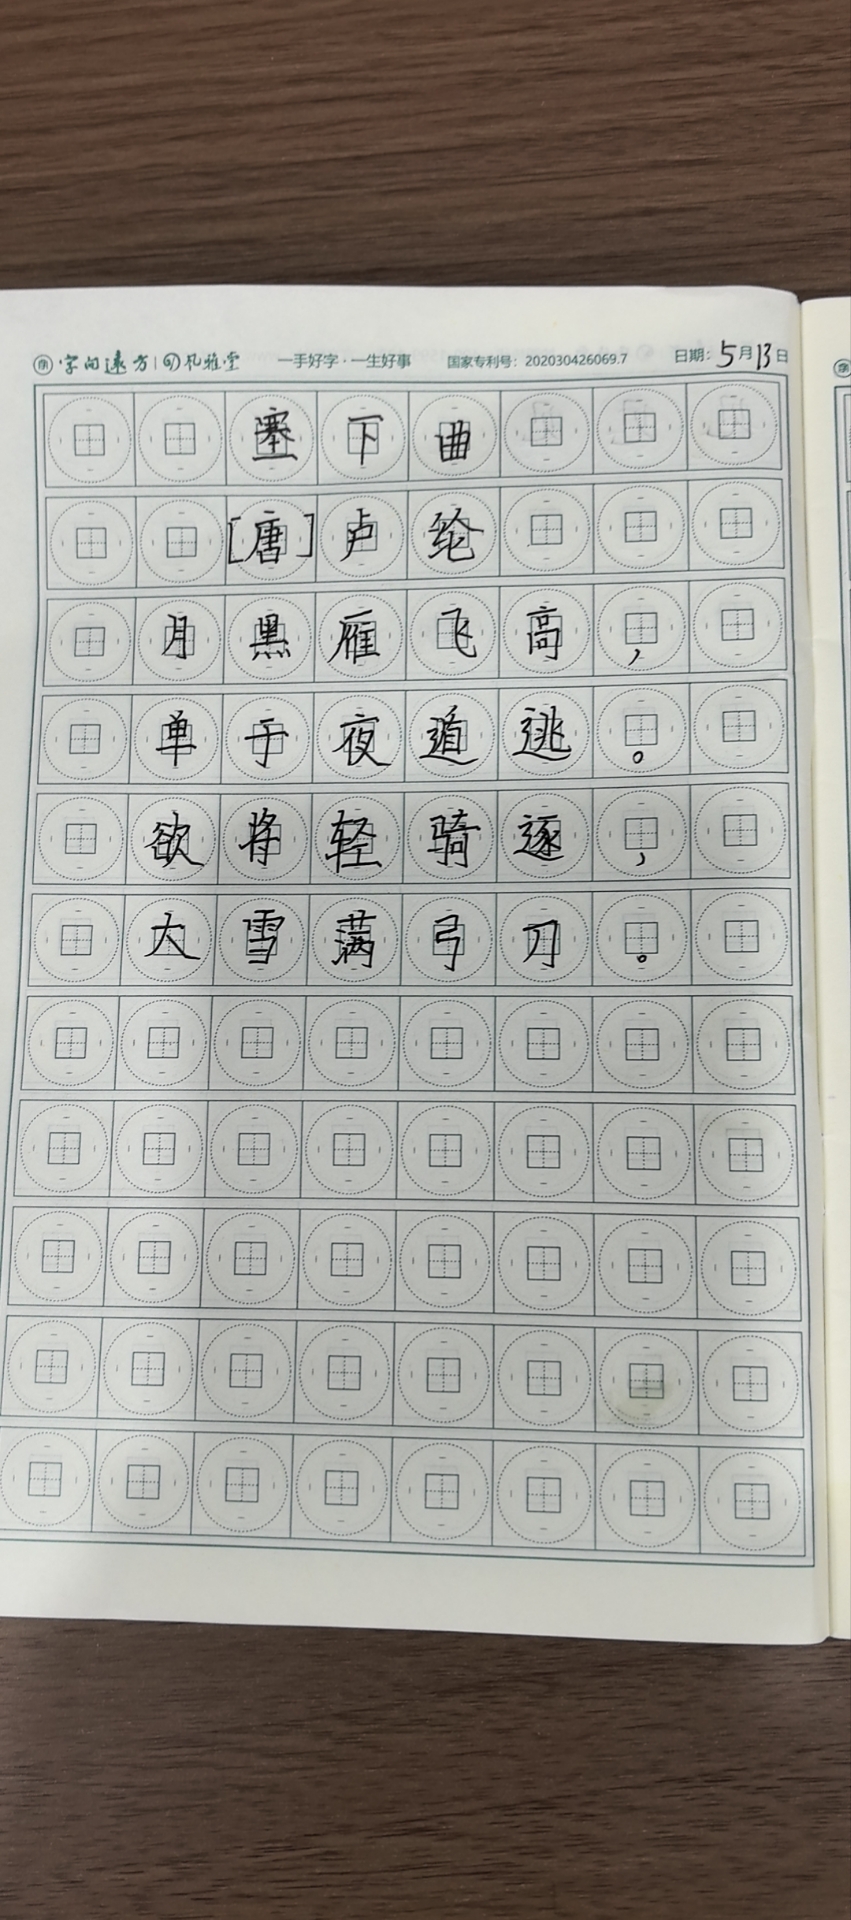 字间远方 | 凡雅堂 一手好字·一生好事 国家专利号：202030426069.7 日期：5月13日
塞下曲
[唐]卢纶
月黑雁飞高，
单于夜道逃。
欲将轻骑逐，
大雪满弓刀。